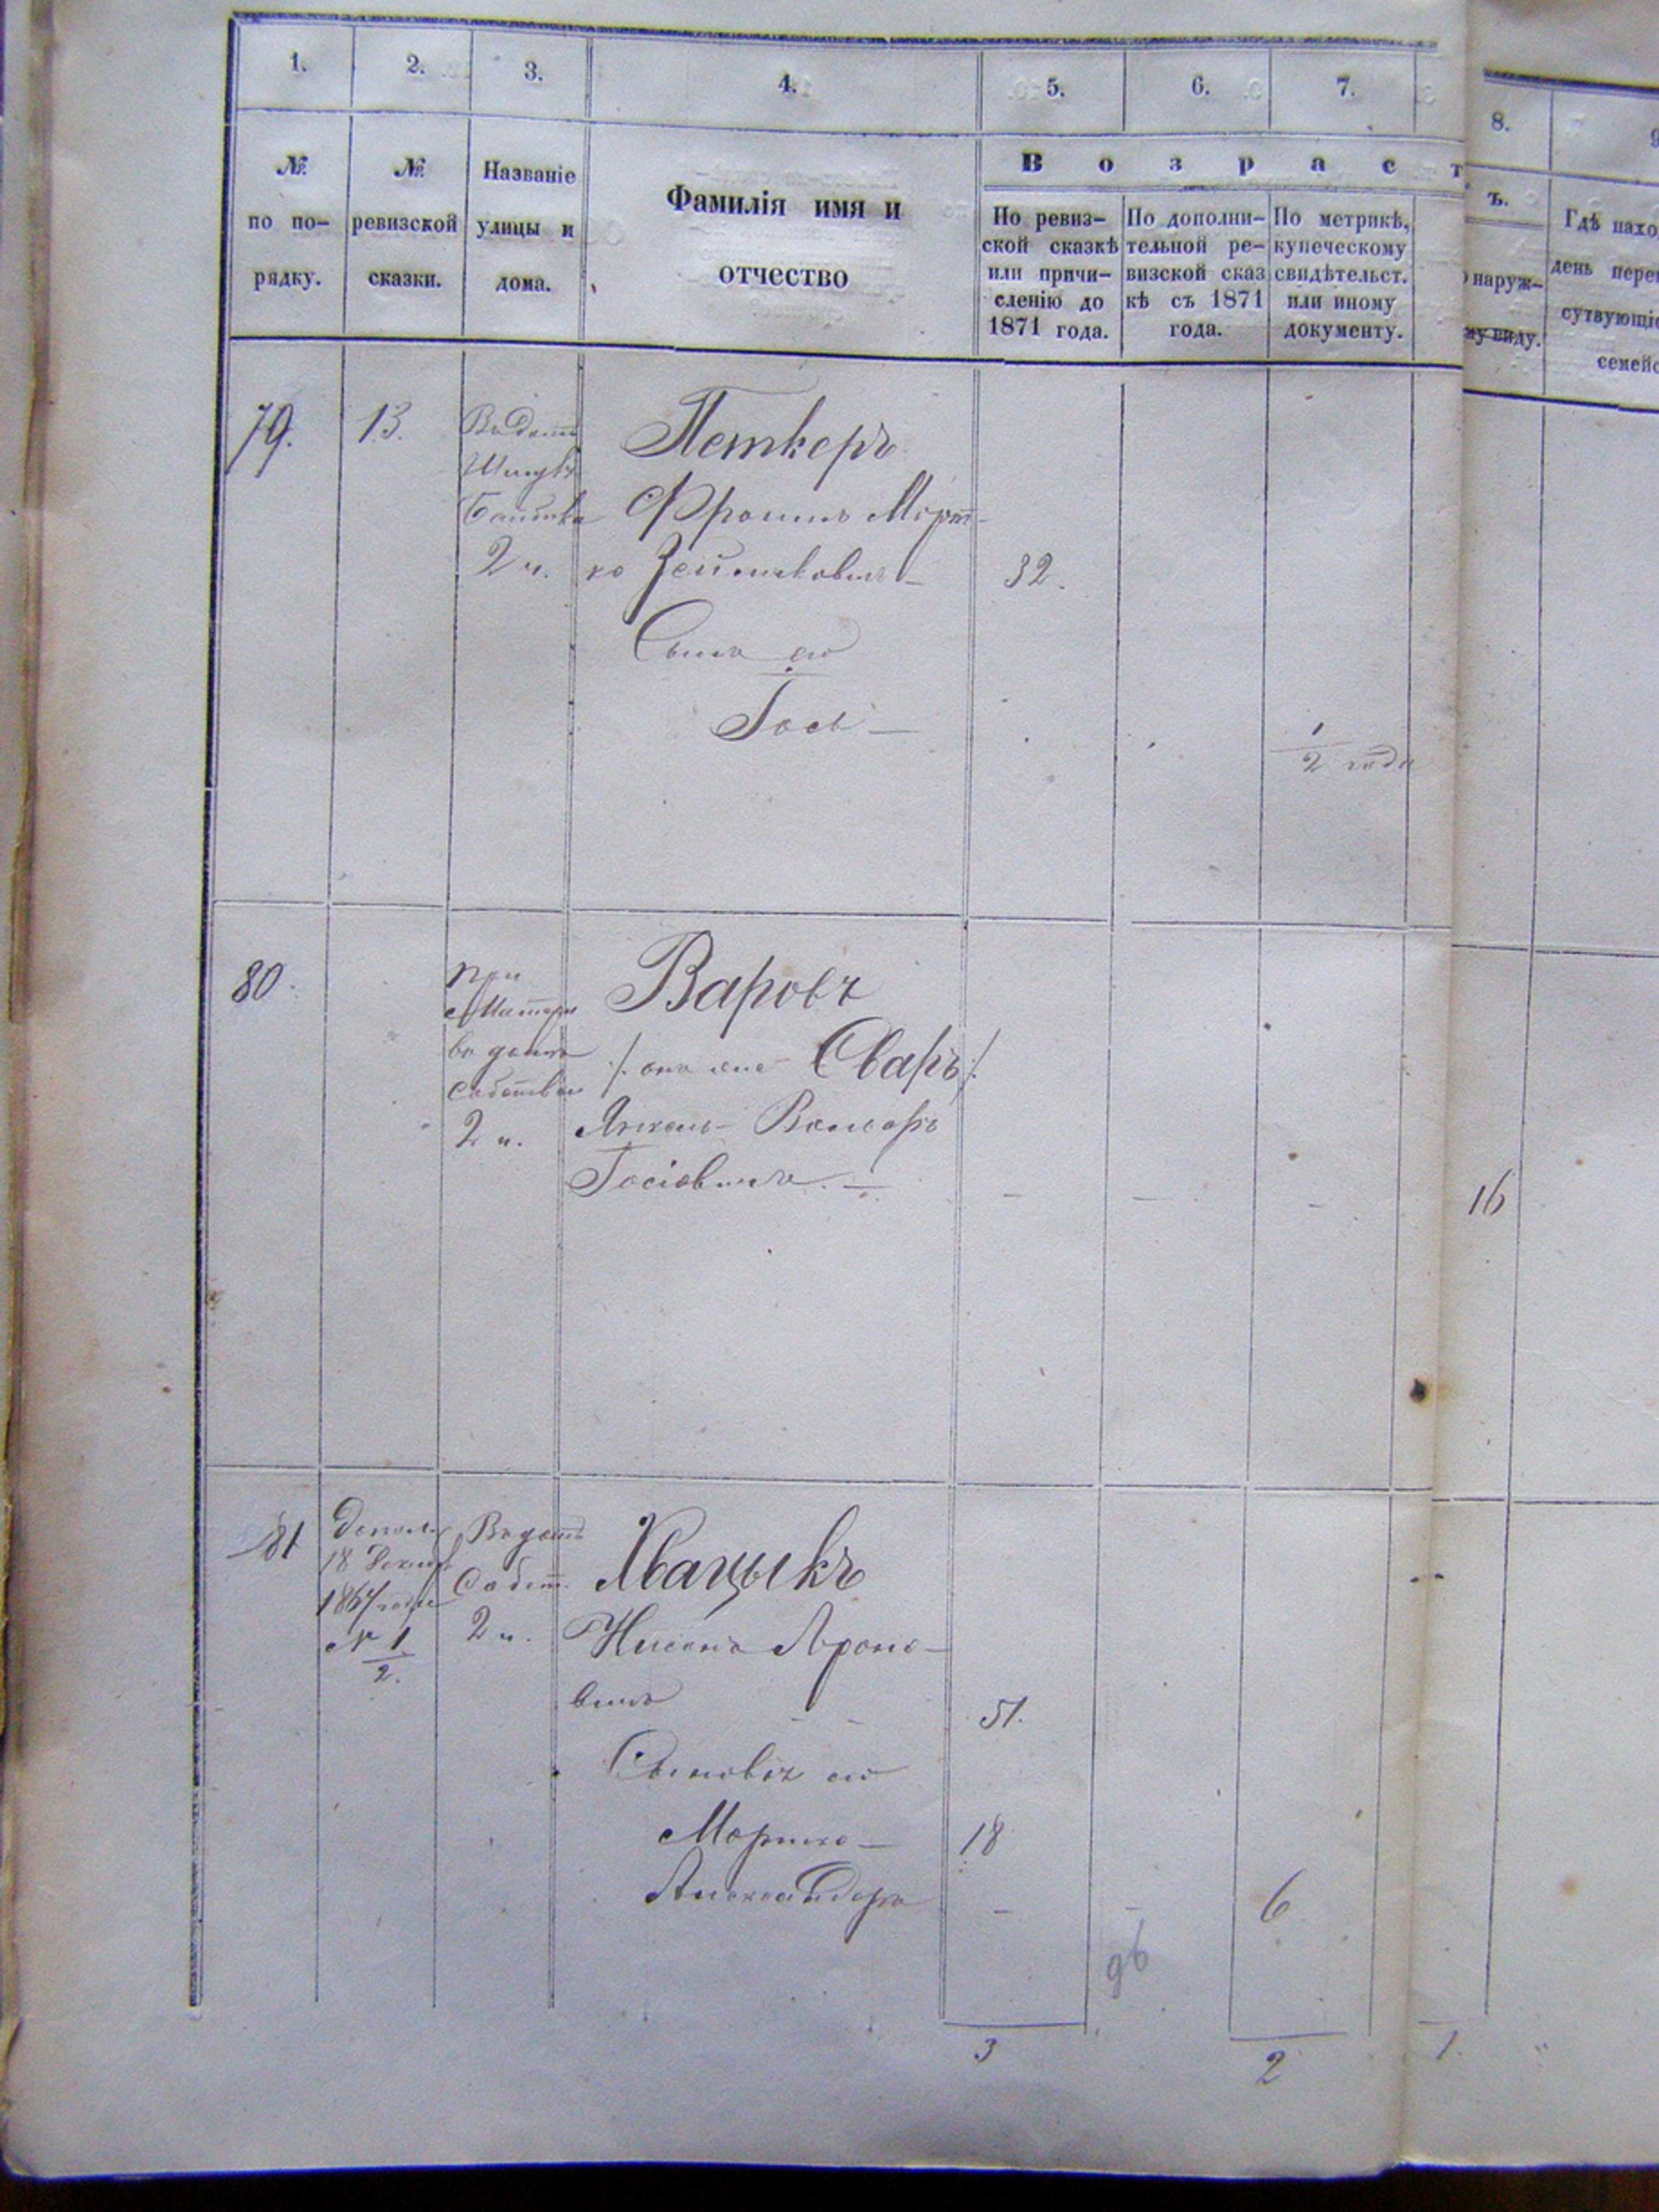 1. 2. 3. 4. 5. 6. 7.
8.
№ по порядку.
№ ревизской сказки.
Названіе улицы и дома.
Фамилія имя и отчество
Возраст
ъ.
По ревиз-
ской сказкѣ
или причи-
сленію до
1871 года.
По дополни-
тельной ре-
визской сказ
кѣ съ 1871
года.
По метрикѣ,
купеческому
свидѣтельст.
или иному
документу.
наруж-
му виду.
Гдѣ нахо
день пере
сутвующі
семей
79. 13.
Петкеръ
2 ч.
32.
Сынъ его
Іось
1/2 года
80.
при
Матери
въ домѣ
2 ч.
Варовъ
/: онъ же Сваръ :/
Іосіовичъ
16
81
допол.
18
1867 года
№ 1/2.
2 ч.
Хвацыкъ
Нисонъ Ароно-
вичъ
51.
Сыновья его
Мортко
18
Александръ
6
96
3 2 1.